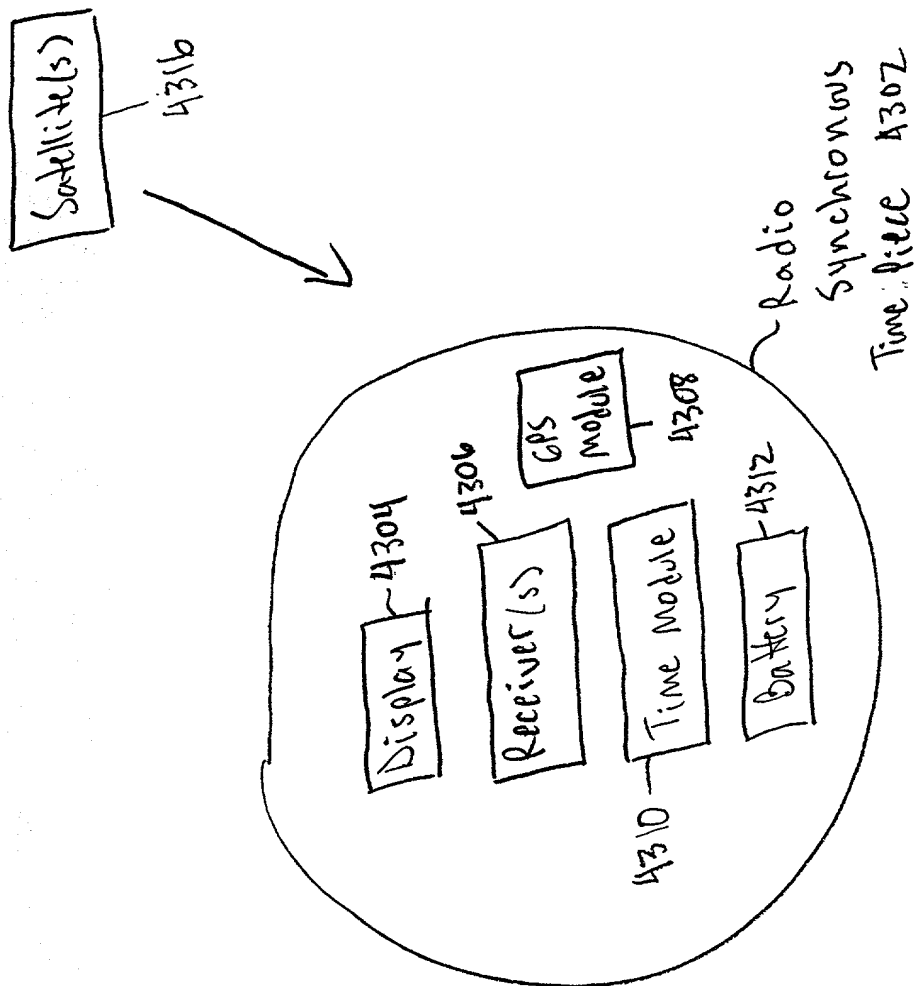 Satellite(s)
4316
Display
4304
4306
Receiver(s)
GPS
Module
4308
4310
Time Module
Battery
4312
Radio
Synchronous
Time Piece 4302